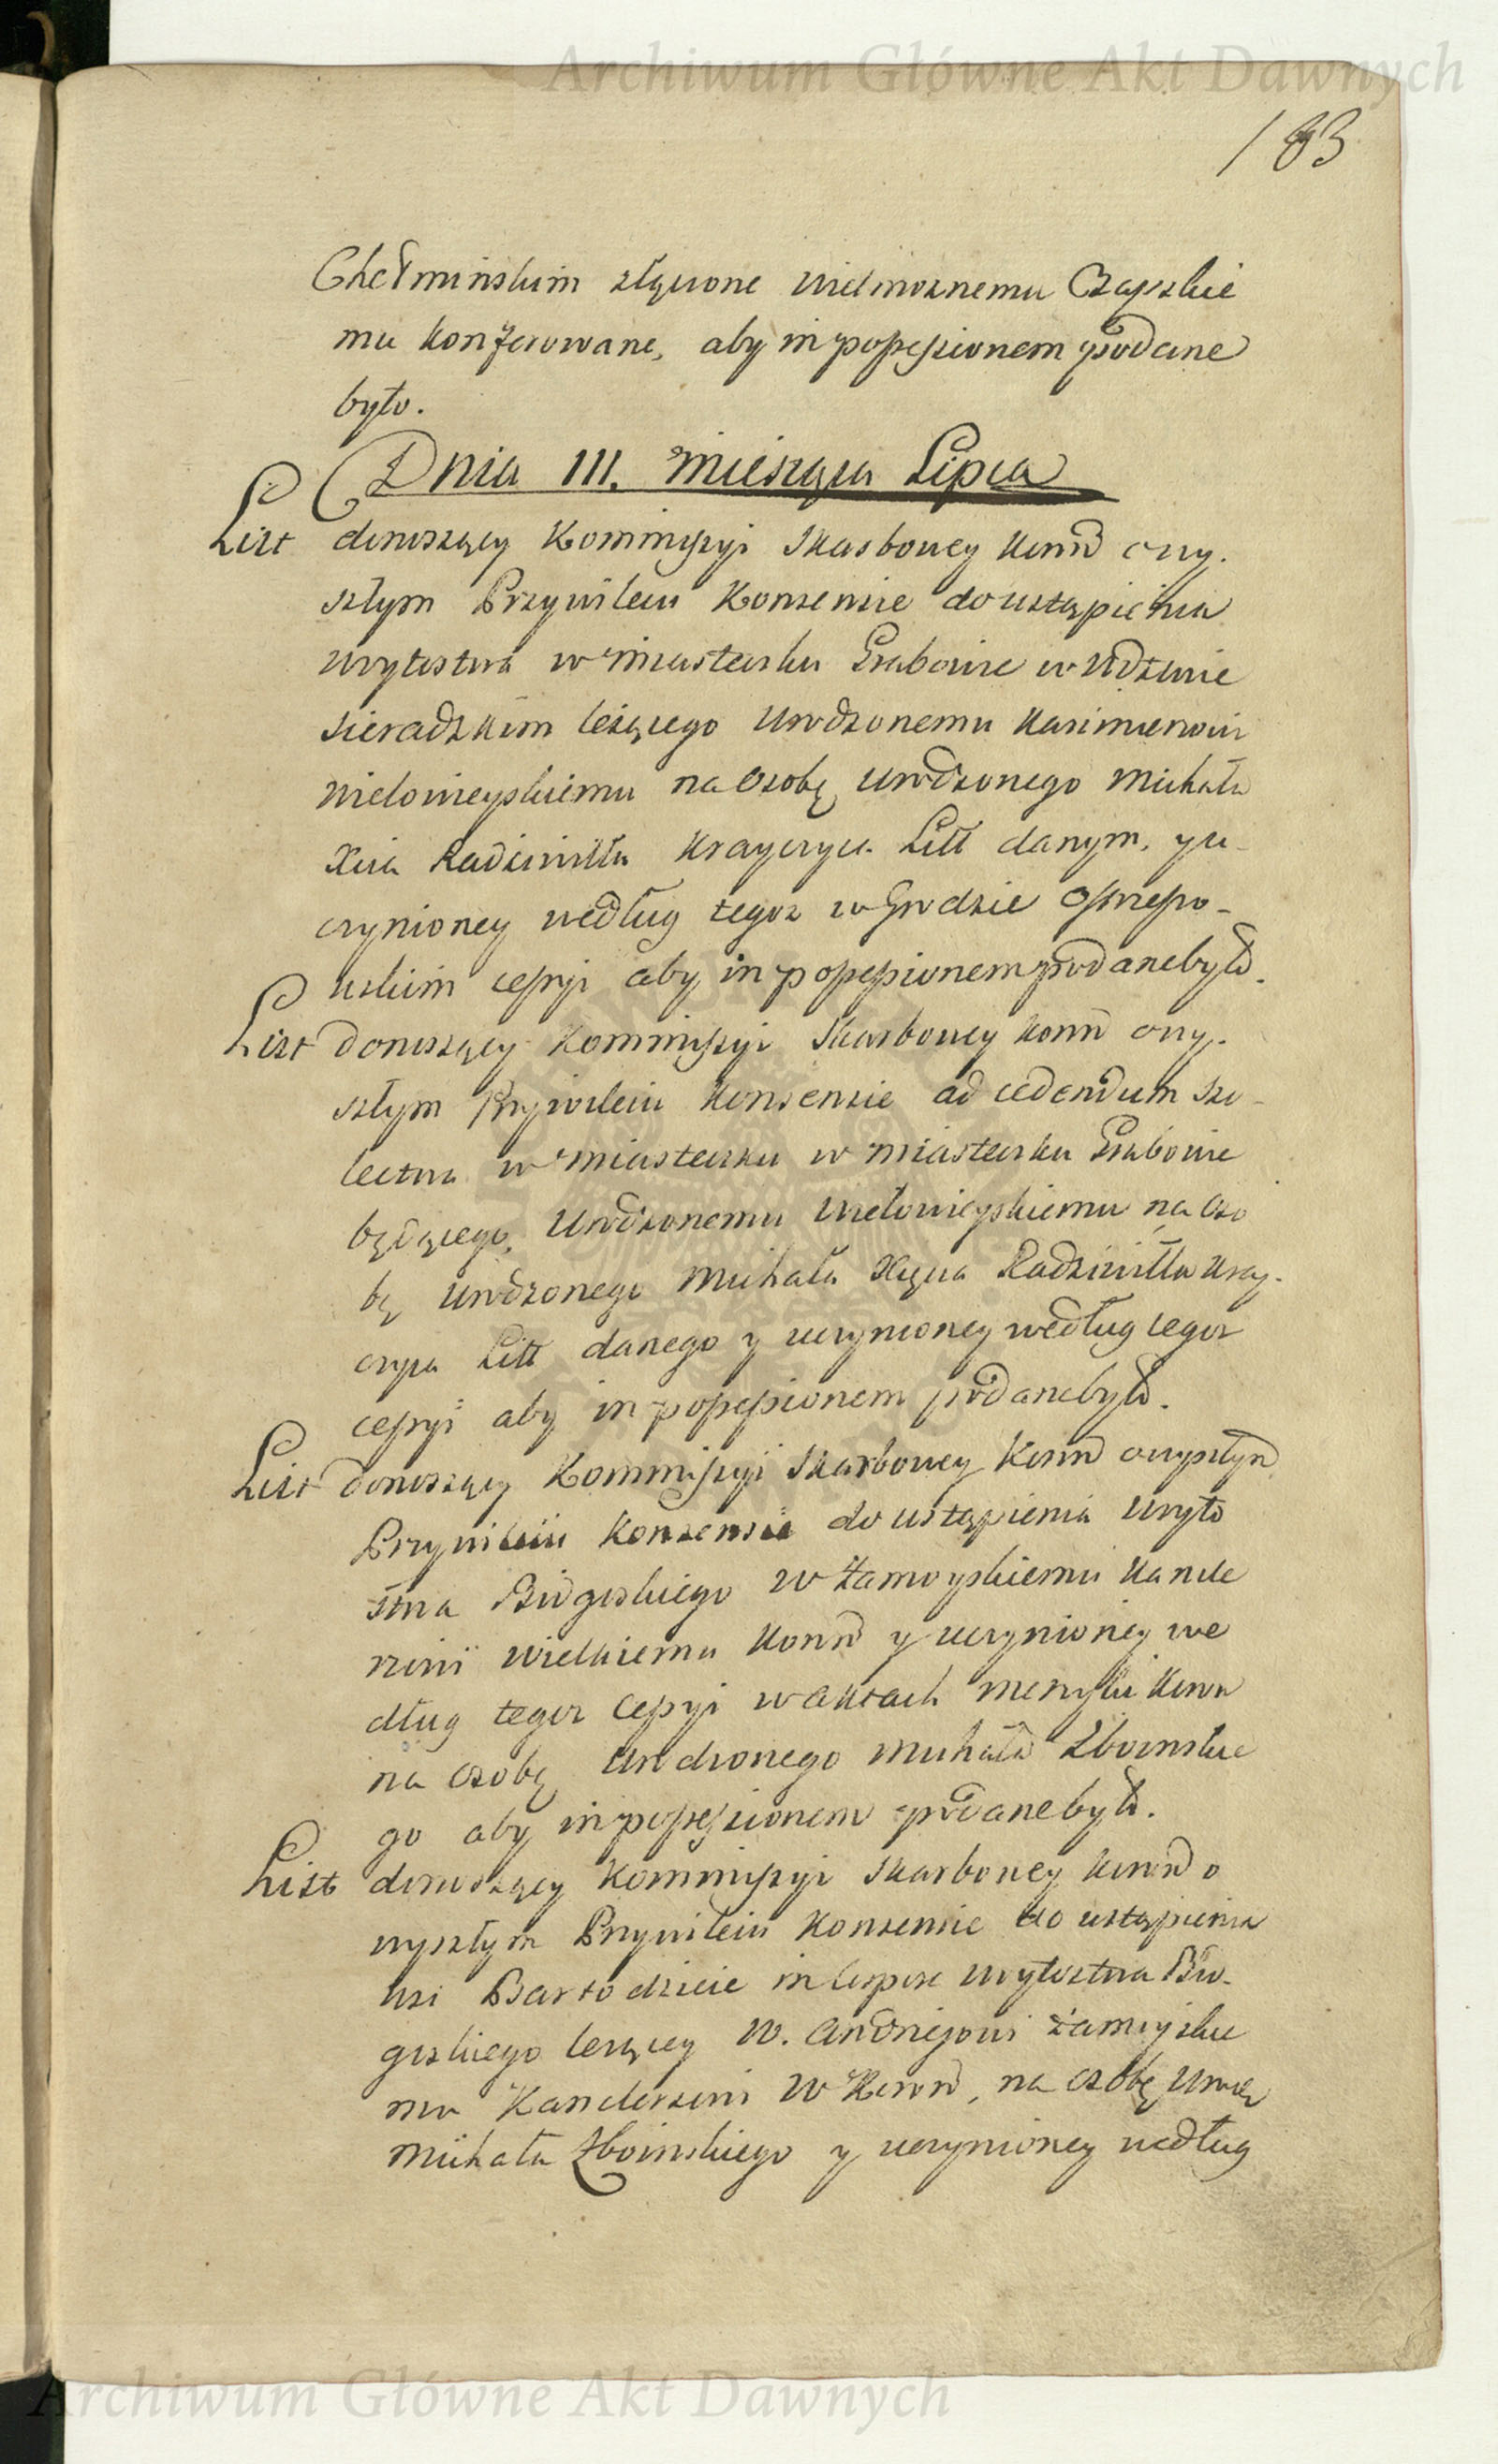 Archiwum Główne Akt Dawnych
183
Chełminskim złączone Wielmoznemu Czapskie
mu konferowane, aby in possessionem podane
było.
Dnia III. Miesząca Lipca
List donoszący Kommissyi Skarbowey Koron o wy-
szłym Przywileiu Konsensie do ustąpienia
woytostwa w miasteczku Grabowie w Wdztwie
Sieradzkim leżącego Urodzonemu Kazimierzowi
Wielowieyskiemu na Osobę Urodzonego Michała
Xcia Radziwiłła Krayczyca Litt danym, y u-
czynioney według tegoz w Grodzie
skim cessyi aby in possessionem podane było.
List donoszący Kommissyi Skarbowey Koron o wy-
szłym Przywileiu Konsensie ad cedendum Szo-
lectwa w miasteczku w miasteczku Grabowie
będącego, Urodzonemu Wielowieyskiemu na Oso
bę Urodzonego Michała Xięcia Radziwiłła Kray-
czyca Litt danego y uczynioney według tegoz
cessyi aby in possessionem podane było.
List donoszący Kommissyi Skarbowey Koron o wyszłym
Przywileiu Konsensie do ustąpienia Woyto
stwa Bydgoskiego W Zamoyskiemu Kancle
rzowi Wielkiemu Koron y uczynioney we
dług tegoz Cessyi w Aktach Metryki Koron
na Osobę Urodzonego Michała Zboinskie
go aby in possessionem podane było.
List donoszący Kommissyi Skarbowey Koron o
wyszłym Przywileiu Konsensie do ustąpienia
wsi Bartodzieie in Corpore Woytostwa Byd-
goskiego leżącey W. Andrzejowi Zamoyskie
mu Kanclerzowi W Koron, na Osobę Urodz
Michała Zboinskiego y uczynioney według
Archiwum Główne Akt Dawnych